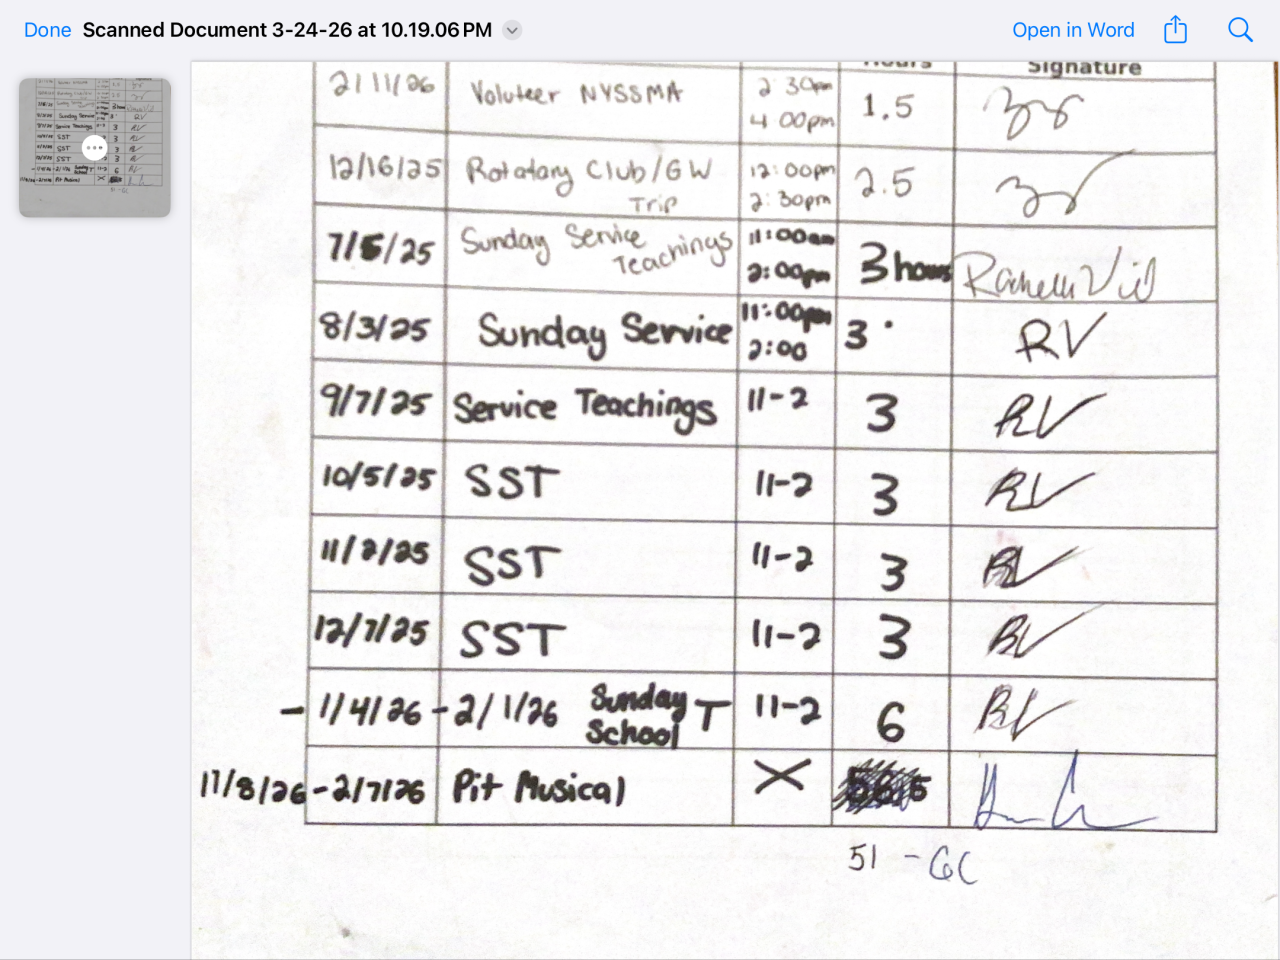 Done Scanned Document 3-24-26 at 10.19.06 PM Open in Word
Hours Signature
2/11/26 Voluteer NYSSMA 2 30pm 4 00pm 1.5
12/16/25 Rotatary Club/GW Trip 12:00pm 2:30pm 2.5
7/6/25 Sunday Service Teachings 11:00am 2:00pm 3 hours
8/3/25 Sunday Service 11:00pm 2:00 3 RV
9/7/25 Service Teachings 11-2 3 RV
10/5/25 SST 11-2 3 RV
11/2/25 SST 11-2 3 RV
12/7/25 SST 11-2 3 RV
- 1/4/26 - 2/1/26 Sunday School T 11-2 6 RV
11/8/26 - 2/7/26 Pit Musical X
51 - GC